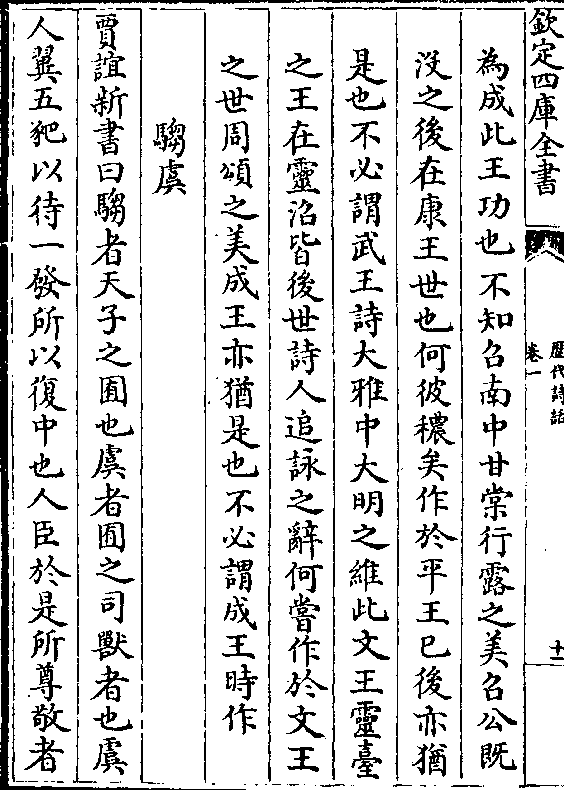 欽定四庫全書
歷代詩話
卷一
十一
為成此王功也不知召南中甘棠行露之美召公既
沒之後在康王世也何彼穠矣作於平王已後亦猶
是也不必謂武王詩大雅中大明之維此文王靈臺
之王在靈沼皆後世詩人追詠之辭何嘗作於文王
之世周頌之美成王亦猶是也不必謂成王時作
騶虞
賈誼新書曰騶者天子之囿也虞者囿之司獸者也虞
人翼五豝以待一發所以復中也人臣於是所尊敬者